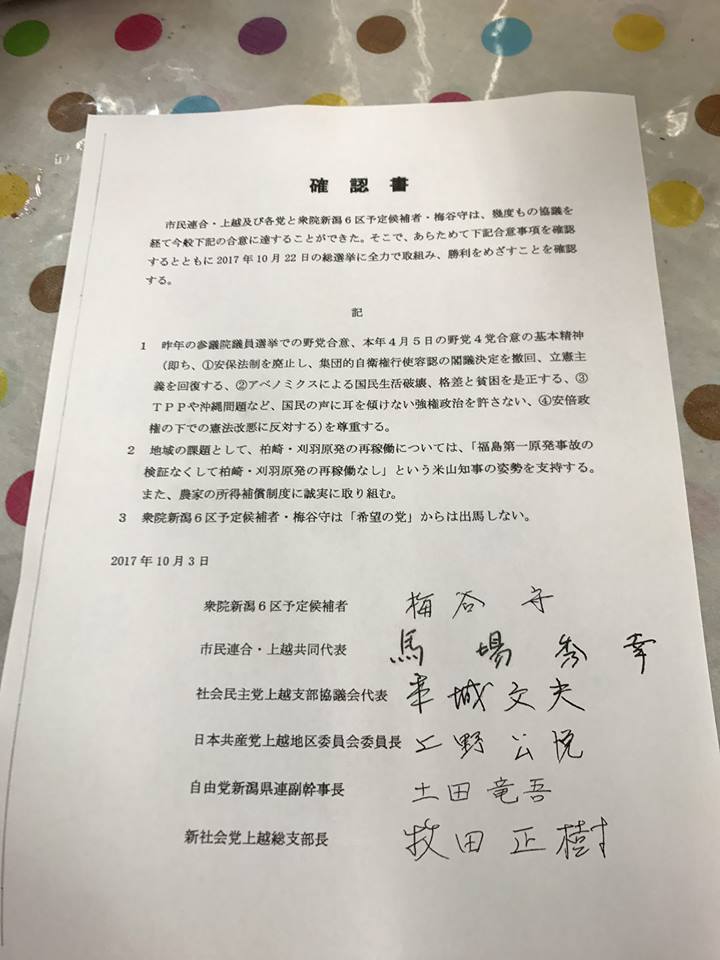 確認書
市民連合・上越及び各党と衆院新潟６区予定候補者・梅谷守は、幾度もの協議を
経て今般下記の合意に達することができた。そこで、あらためて下記合意事項を確認
するとともに2017年10月22日の総選挙に全力で取組み、勝利をめざすことを確認
する。
記
１ 昨年の参議院議員選挙での野党合意、本年４月５日の野党４党合意の基本精神
（即ち、①安保法制を廃止し、集団的自衛権行使容認の閣議決定を撤回、立憲主
義を回復する、②アベノミクスによる国民生活破壊、格差と貧困を是正する、③
ＴＰＰや沖縄問題など、国民の声に耳を傾けない強権政治を許さない、④安倍政
権の下での憲法改悪に反対する）を尊重する。
２ 地域の課題として、柏崎・刈羽原発の再稼働については、「福島第一原発事故の
検証なくして柏崎・刈羽原発の再稼働なし」という米山知事の姿勢を支持する。
また、農家の所得補償制度に誠実に取り組む。
３ 衆院新潟６区予定候補者・梅谷守は「希望の党」からは出馬しない。
2017年10月3日
衆院新潟６区予定候補者 梅谷 守
市民連合・上越共同代表 馬場秀幸
社会民主党上越支部協議会代表 城文夫
日本共産党上越地区委員会委員長 上野公悦
自由党新潟県連副幹事長 土田竜吾
新社会党上越総支部長 牧田正樹